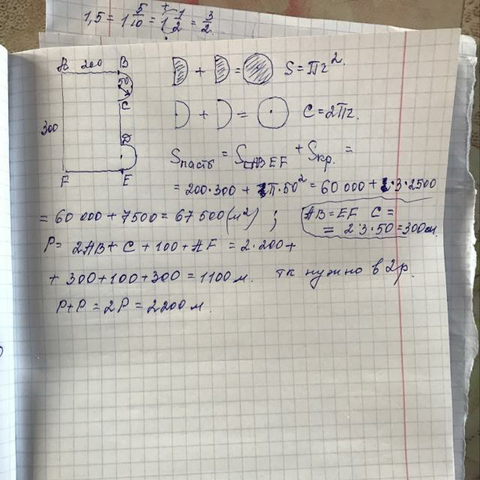 1,5 = 1 5/10 = 1 1/2 = 3/2
A 200 B
50
C
300
D
F E
D + D = S = πr².
D + D = C = 2πr.
Sпастб = S□ABEF + Sкр. =
= 200·300 + π·50² = 60 000 + 3·2500
= 60 000 + 7500 = 67 500 (м²) ;
AB = EF C =
= 2·3·50 = 300м.
P = 2AB + C + 100 + AF = 2·200 +
+ 300 + 100 + 300 = 1100 м. тк нужно в 2р.
P+P = 2P = 2200 м.